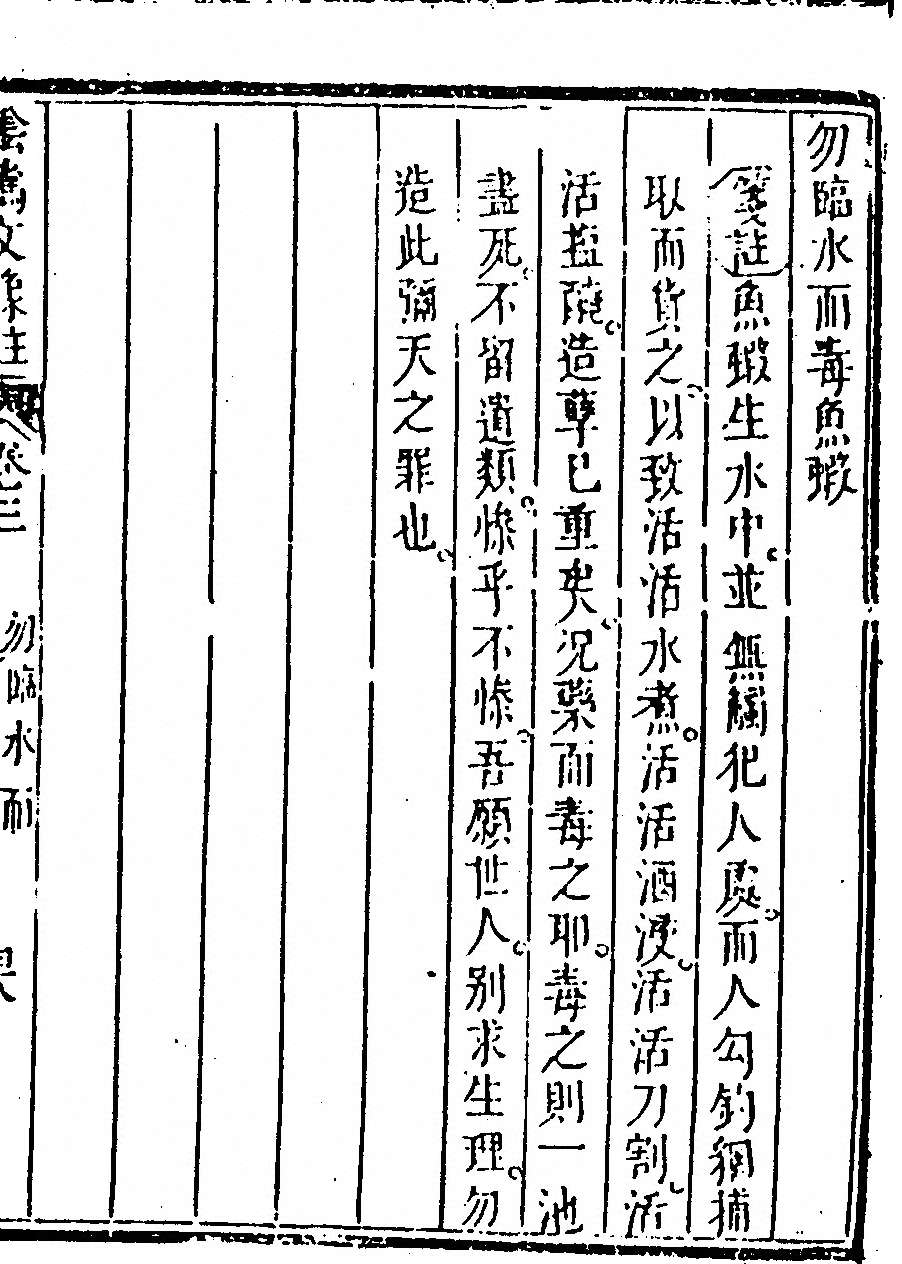 勿臨水而毒魚蝦
箋註魚蝦生水中並無觸犯人處而人勾釣網捕
取而貨之以致活活水煮活活酒浸活活刀割活
活鹽燒造孽已重矣況藥而毒之耶毒之則一池
盡死不留遺類慘乎不慘吾願世人別求生理勿
造此彌天之罪也
陰騭文像註 卷三 勿臨水而